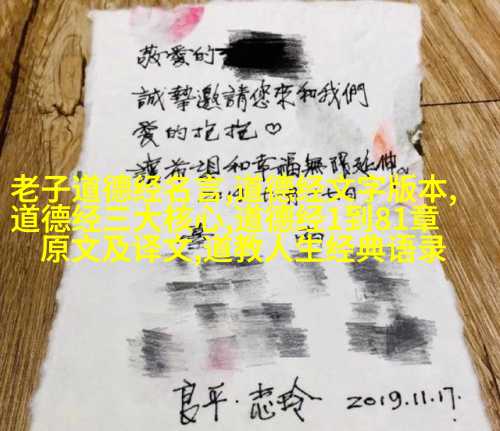 敬愛的
誠摯邀請您來和我們
愛的抱抱♡
讓希望和幸福無限延伸。
老子道德经名言,道德经文字版本,
道德经三大核心,道德经1到81章
原文及译文,道教人生经典语录
良平·志玲 2019.11.17.